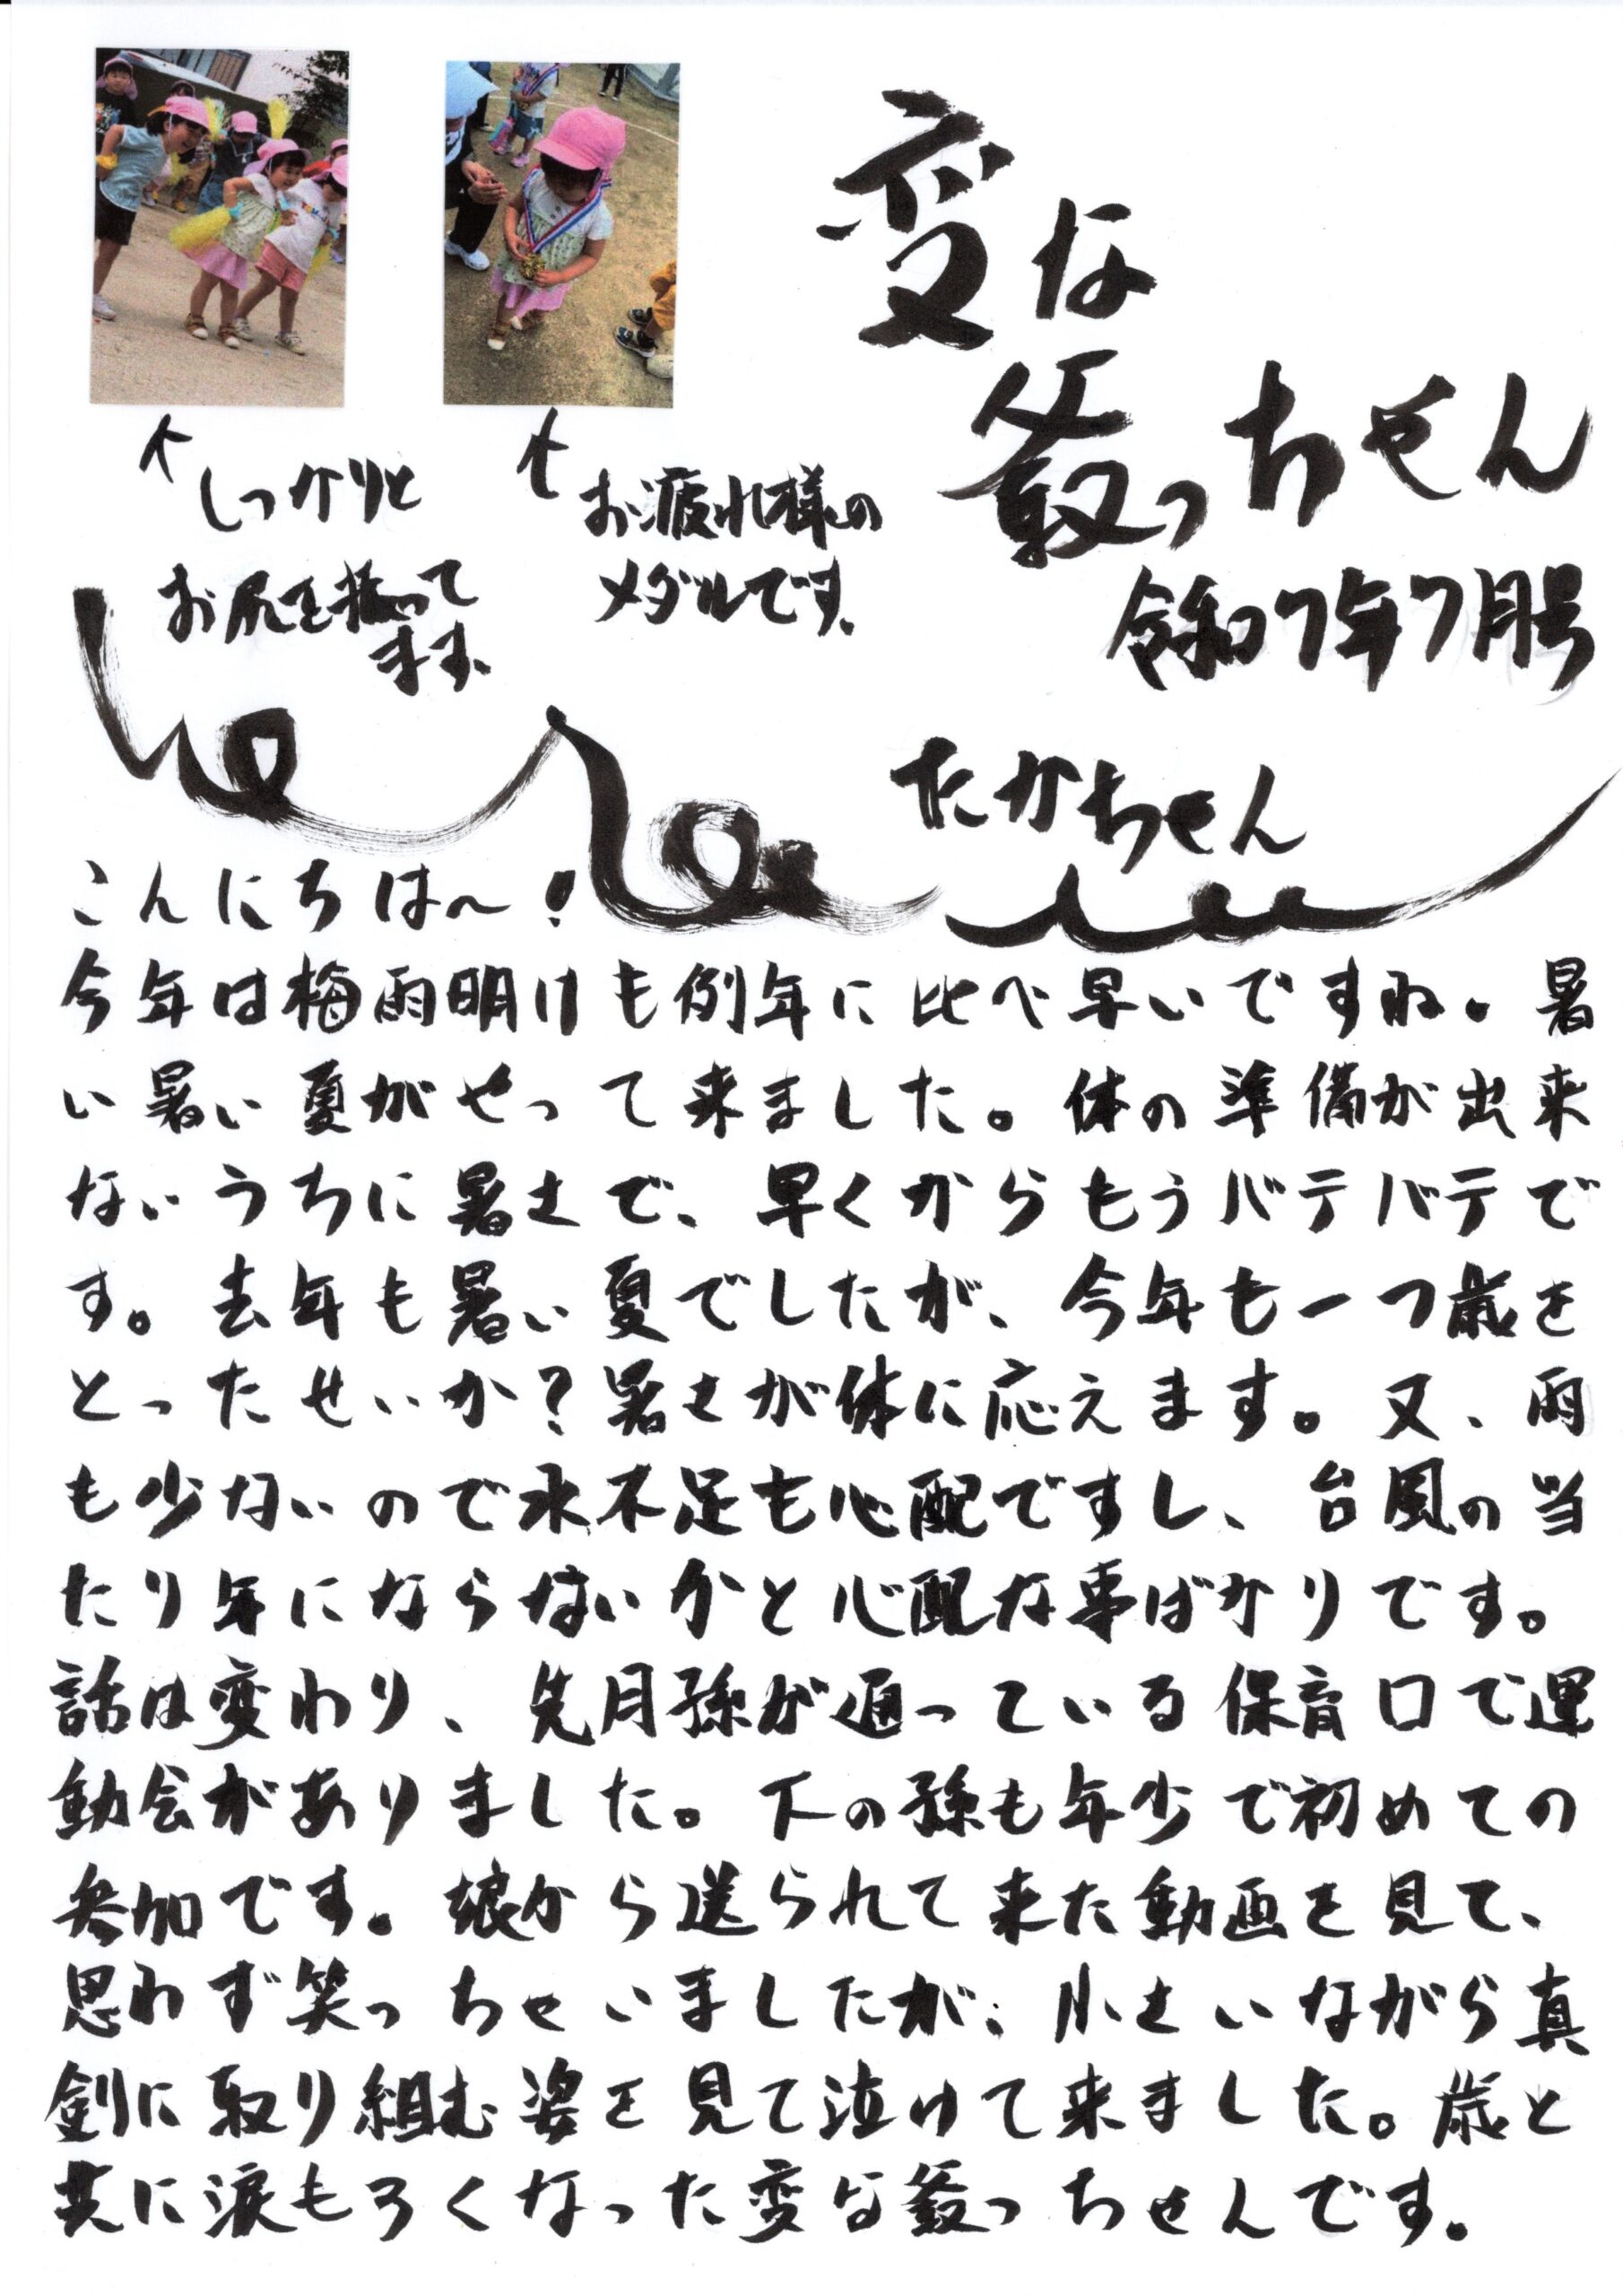 変な
爺っちゃん
令和7年7月号
しっかりと
お尻を振って
ます。
お疲れ様の
メダルです。
たかちゃん
こんにちは～!
今年は梅雨明けも例年に比べ早いですね。暑
い暑い夏がやって来ました。体の準備が出来
ないうちに暑さで、早くからもうバテバテで
す。去年も暑い夏でしたが、今年も一つ歳を
とったせいか?暑さが体に応えます。又、雨
も少ないので水不足も心配ですし、台風の当
たり年にならないかと心配な事ばかりです。
話は変わり、先月孫が通っている保育口で運
動会がありました。下の孫も年少で初めての
参加です。娘から送られて来た動画を見て、
思わず笑っちゃいましたが、小さいながら真
剣に取り組む姿を見て泣けて来ました。歳と
共に涙もろくなった変な爺っちゃんです。